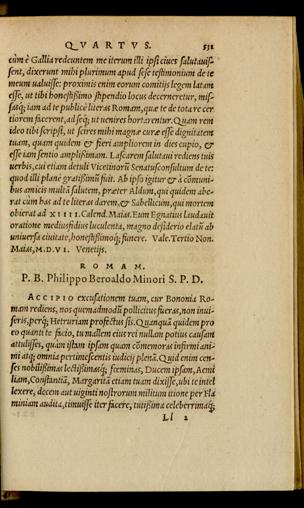 QVARTVS. 531
cùm è Gallia redeuntem me iterum illi ipsi ciues salutauis-
sent, dixerunt mihi plurimum apud sese testimonium de te
meum ualuisse: proximis enim eorum comitijs legem latam
esse, ut tibi honestissimo stipendio locus decerneretur, mis-
sasq́; iam ad te publicè literas Romam, quæ te de tota re cer-
tiorem facerent, ad seq́; ut uenires hortarentur. Quam rem
ideo tibi scripsi, ut scires mihi magnæ curæ esse dignitatem
tuam, quam quidem & fieri ampliorem in dies cupio, &
esse iam sentio amplissimam. Lascarem salutaui rediens tuis
uerbis, cui etiam detuli Vicetinorũ Senatusconsultum de te:
quod illi planè gratissimũ fuit. Ab ipso igitur & à cõmuni-
bus amicis multã salutem, præter Aldum, qui quidem abe-
rat cùm has ad te literas darem, & Sabellicum, qui mortem
obierat ad XIIII. Calend. Maias. Eum Egnatius laudauit
oratione mediusfidius luculenta, magno desiderio elatũ ab
uniuersa ciuitate, honestissimoq́; funere. Vale. Tertio Non.
Maias, M. D. VI. Venetijs.
ROMAM.
P. B. Philippo Beroaldo Minori S. P. D.
ACCIPIO excusationem tuam, cur Bononia Ro-
mam rediens, nos quemadmodũ pollicitus fueras, non inui-
seris, perq́; Hetruriam profectus sis. Quanquã quidem pro
eo quanti te facio, tu mallem eius rei nullam potius causam
attulisses, quàm istam ipsam quam cõmemoras infirmi ani-
mi atq; omnia pertimescentis iudicij plenã. Quid enim cen-
ses nobilissimas lectissimasq́; fœminas, Ducem ipsam, Aemi
liam, Constantiã, Margaritã etiam tuam dixisse, ubi te intel
lexere, decem aut uiginti nostrorum militum itione per Fla
miniam audita, timuisse iter facere, tutissima celeberrimaq́;
Ll 2